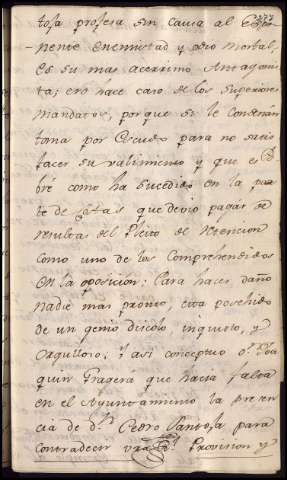 tosa profesa sin causa al Expo-
nente enemistad y odio mortal,
es su mas acerrimo Antagonis
ta; ero hace caso de los Superiores
mandatos, porque si le
toma por Escudo para no satis
facer su valimiento y que es
bré como ha sucedido en la par
te de Costas que devio pagar de
resultas del Pleito de Retencion
como uno de los Comprendidos
en la oposicion: Para hacer daño
nadie mas pronto, esta posehido
de un genio discolo inquieto, y
orgulloso; i asi conceptuo qe. Joa
quin Tragera que hacia falta
en el Ayuntamiento la presen
cia de Dn. Pedro Pantoja para
contradecir vra. Rl. Provision y